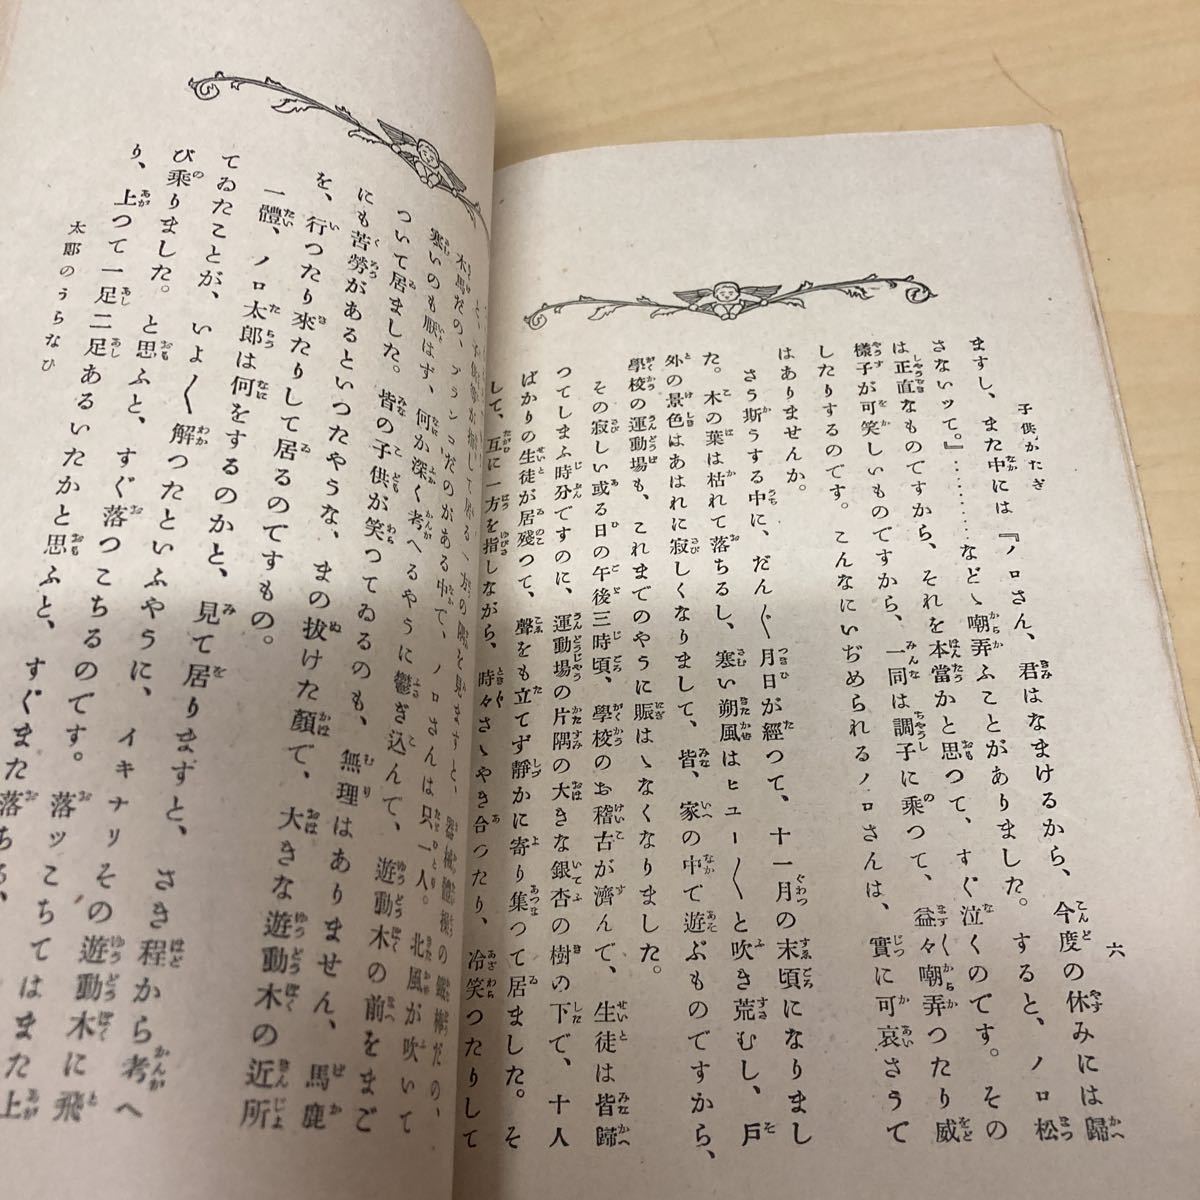 子供かたぎ
六
ますし、また中には『ノロさん、君はなまけるから、今度の休みには歸
さないッて。』………などゝ嘲弄ふことがありました。すると、ノロ松
は正直なものですから、それを本當かと思つて、すぐ泣くのです。その
樣子が可笑しいものですから、一同は調子に乘つて、益々嘲弄つたり威
したりするのです。こんなにいぢめられるノロさんは、實に可哀さうで
はありませんか。
さう斯うする中に、だん〱月日が經つて、十一月の末頃になりまし
た。木の葉は枯れて落ちるし、寒い朔風はヒュー〱と吹き荒むし、戸
外の景色はあはれに寂しくなりまして、皆、家の中で遊ぶものですから、
學校の運動場も、これまでのやうに賑はゝなくなりました。
その寂しい或る日の午後三時頃、學校のお稽古が濟んで、生徒は皆歸
つてしまふ時分ですのに、運動場の片隅の大きな銀杏の樹の下で、十人
ばかりの生徒が居殘つて、聲をも立てず靜かに寄り集つて居ました。そ
して、互に一方を指しながら、時々さゝやき合つたり、冷笑つたりして
木馬だの、ブランコだのがある中で、ノロさんは只一人。北風が吹いて
寒いのも厭はず、何か深く考へるやうに鬱ぎ込んで、遊動木の前をまご
ついて居ました。皆の子供が笑つてゐるのも、無理はありません、馬鹿
にも苦勞があるといつたやうな、まの拔けた顏で、大きな遊動木の近所
を、行つたり來たりして居るのですもの。
一體、ノロ太郎は何をするのかと、見て居りますと、さき程から考へ
てゐたことが、いよ〱解つたといふやうに、イキナリその遊動木に飛
び乘りました。と思ふと、すぐ落つこちるのです。落ッこちてはまた上
り、上つて一足二足あるいたかと思ふと、すぐまた落ちる、
太郎のうらなひ